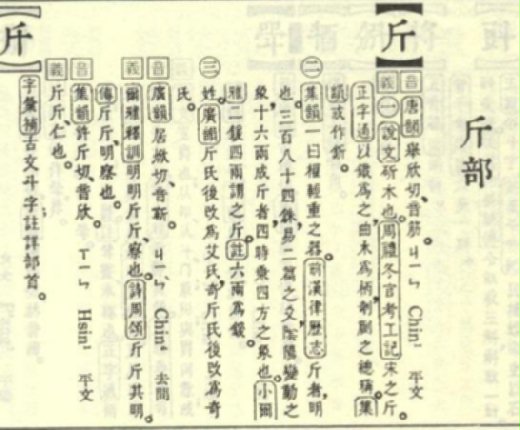 斤部
【斤】
音 唐韻舉欣切音筋。ㄐㄧㄣ Chin¹ 平文
義 ㊀說文斫木也。周禮冬官考工記宋之斤。
正字通以鐵爲之曲木爲柄剞劂之總稱。集
韻或作釿。
㊁集韻一曰權輕重之器。前漢律歷志斤者明
也三百八十四銖易二篇之爻陰陽變動之
象十六兩成斤者四時乘四方之象也。小爾
雅二鍰四兩謂之斤註六兩爲鍰。
㊂姓。廣韻斤氏後改爲艾氏奇斤氏後改爲奇
氏。
音 廣韻居焮切音靳。ㄐㄧㄣˋ Chin⁴ 去問
義 爾雅釋訓明明斤斤察也。詩周頌斤斤其明
傳斤斤明察也。
音 集韻許斤切音欣。ㄒㄧㄣ Hsin¹ 平文
義 斤斤仁也。
字彙補古文斗字註詳部首。